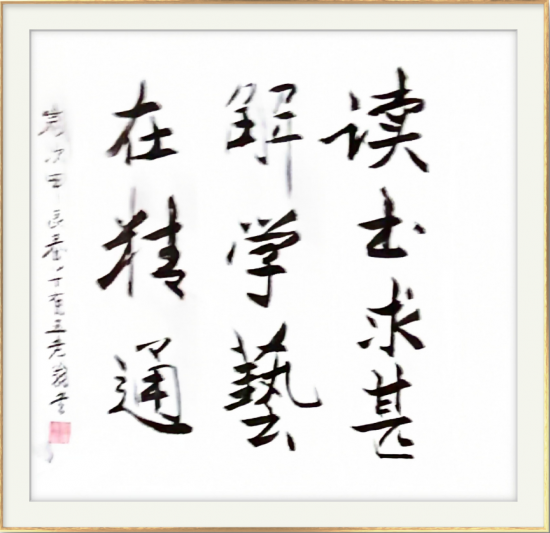 读书求甚
解学藝
在精通